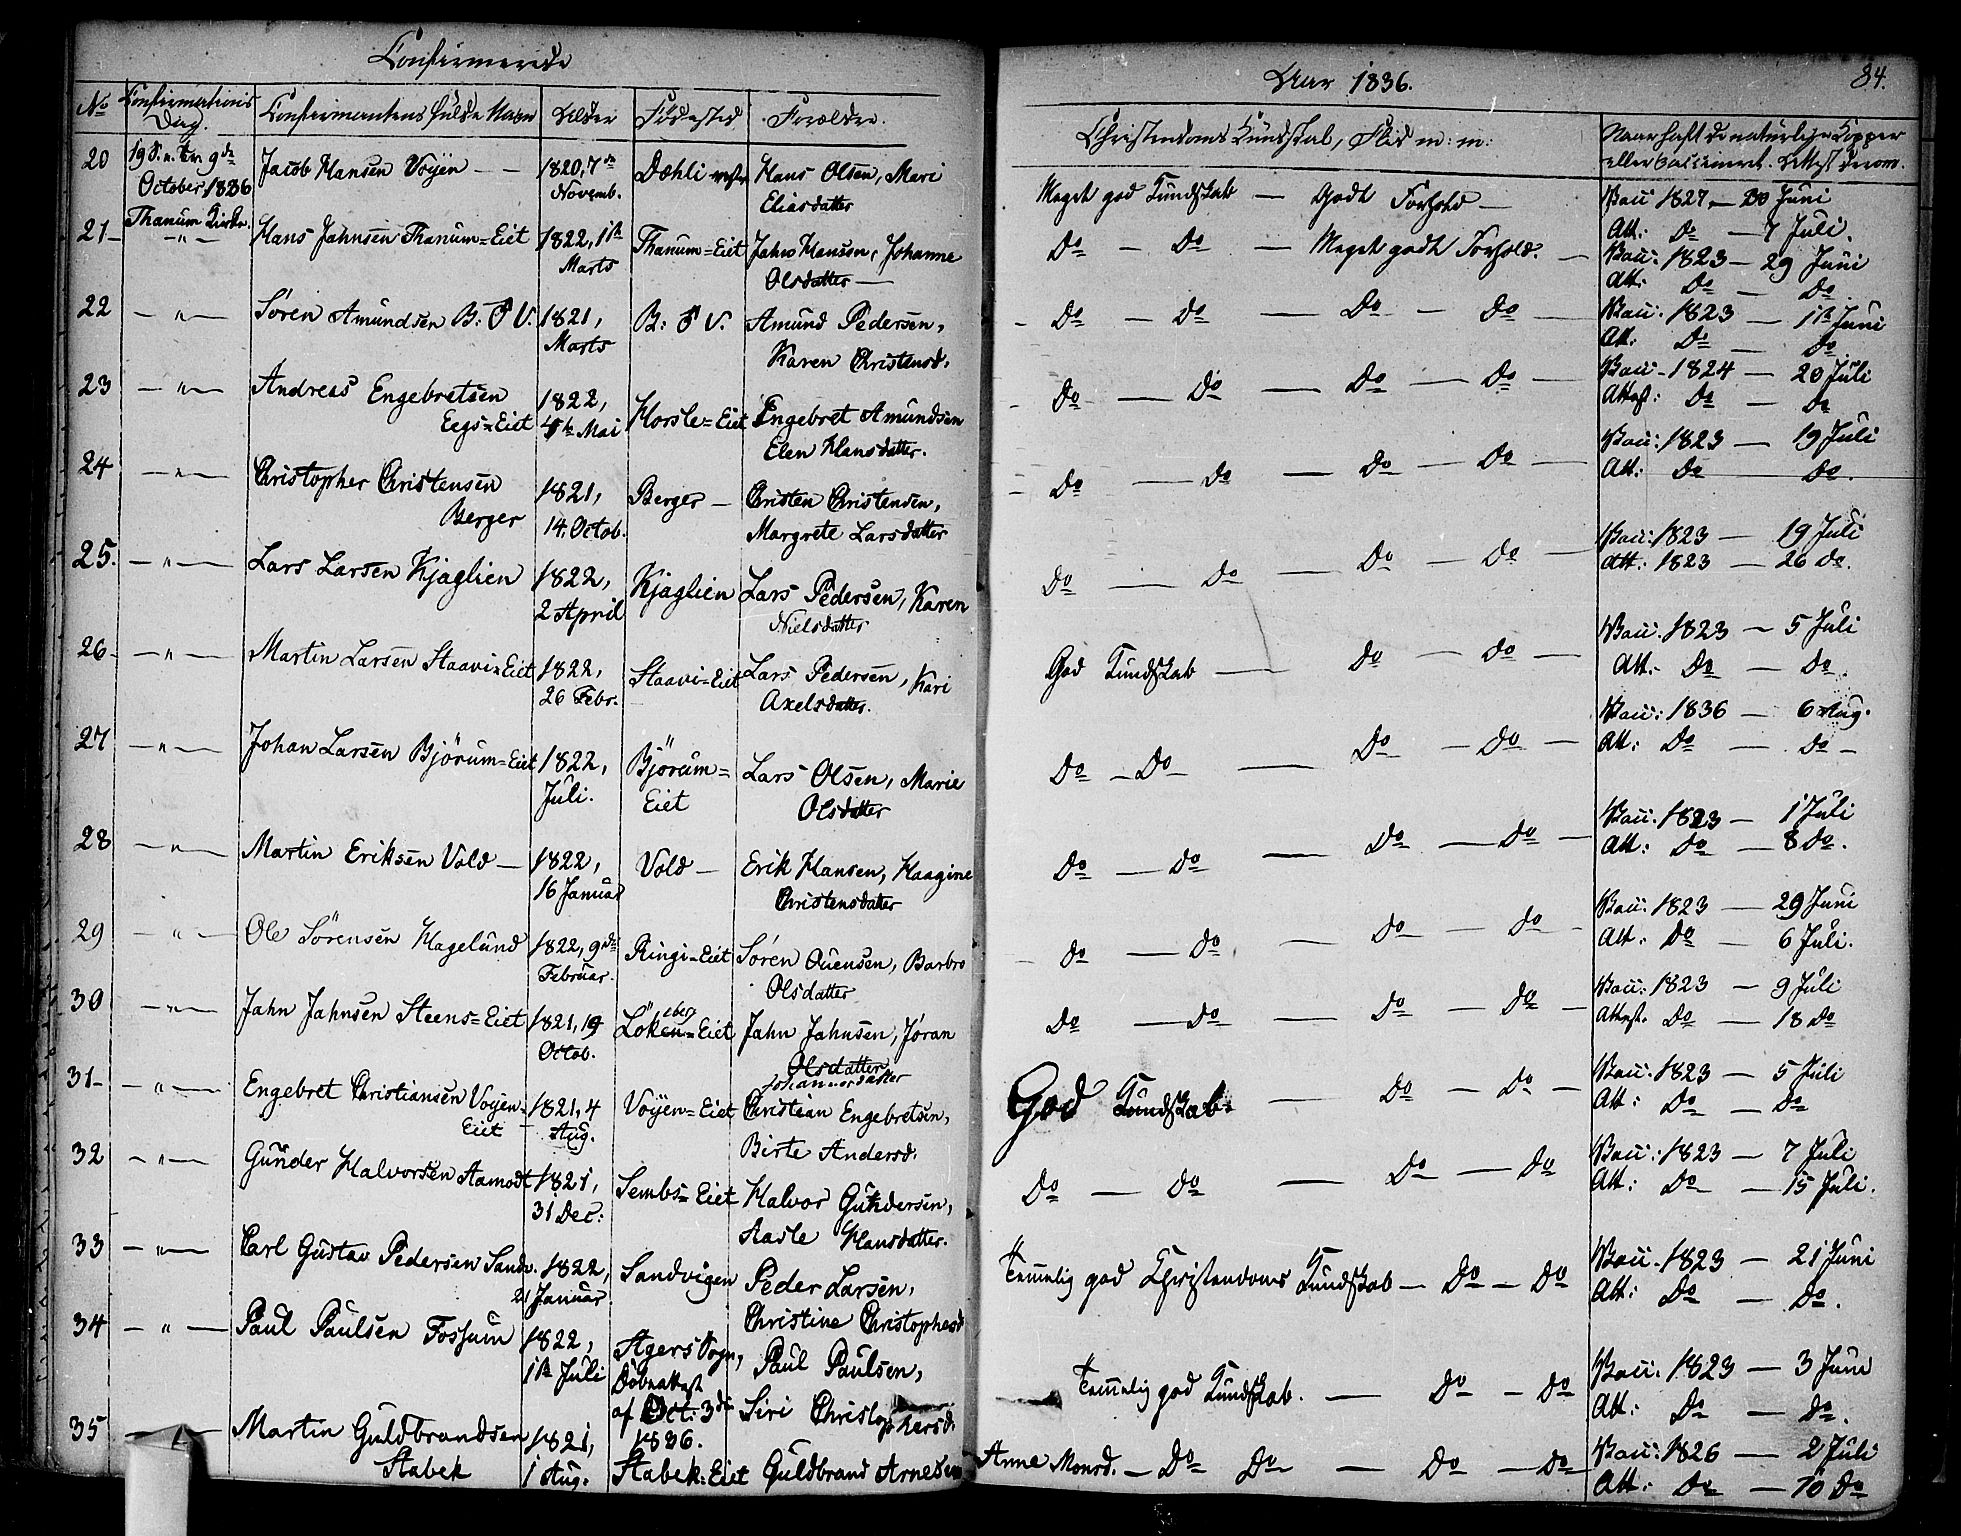 Confirmerede
No Confirmations Dag. Confirmantens fulde Navn Alder Fødested Forældre.
20 19 S. n. Trin. 9de October 1836 Thanum Kirke. Jacob Hansen Voijen - - 1820, 7de Novemb. Dæhli Hans Olsen, Mari Eliasdatter
21 - " - Hans Jahnsen Thanum=Eiet 1822, 1ste Marts Thanum=Eiet Jahn Hansen, Johanne Olsdatter
22 - " - Sören Amundsen B: Ö V. 1821, Marts B: Ö V. Amund Pedersen, Karen Christensd.
23 - " - Andreas Engebretsen Eegs=Eiet 1822, Mai Horsle=Eiet Engebret Amundsen Elen Hansdatter.
24 - " - Christopher Christensen Berger 1821, 14. Octob. Berger - Christen Christensen, Margrete Larsdatter
25. - " - Lars Larsen Kjaglien 1822, 2 April Kjaglien Lars Pedersen, Karen Nielsdatter
26 - " - Martin Larsen Staavi=Eiet 1822, 26 Febr. Staavi=Eiet Lars Pedersen, Kari Axelsdatter.
27 - " - Johan Larsen Bjørum=Eiet 1822, Juli. Bjørum=Eiet Lars Olsen, Marie Olsdatter
28 - " - Martin Eriksen Vold - 1822, 16 Januar Vold - Erik Hansen, Haagine Christensdatter
29 - " - Ole Sörensen Hagelund 1822, 9de Februar. Ringi=Eiet Søren Ouensen, Barbro Olsdatter
30 - " - Jahn Jahnsen Steens=Eiet 1821, 19 Octob. Löken=Eiet Jahn Jahnsen, Jöran Olsdatter Johannesdatter
31 - " - Engebret Christiansen Voijen=Eiet 1821, 4 Aug. Voijen=Eiet Christian Engebretsen, Birte Andersd.
32 - " - Gunder Halvorsen Aamodt 1821, 31 Dec: Sembs=Eiet Halvor Gundersen, Aasle Hansdatter.
33 - " - Carl Gustav Pedersen Sandv. 1822, 21 Januar Sandvigen Peder Larsen, Christine Christophesd
34 - " - Paul Paulsen Fossum 1822, 1ste Juli Agers Sogn, Döbeattest af Oct: 3de 1836. Paul Paulsen, Siri Christophersd.
35 - " - Martin Guldbrandsen Stabek 1821, 1 Aug. Stabek=Eiet Guldbrand Arnesen
Aar 1836. 84.
Christendoms Kundskab, Flid m: m: Naar haft de naturlige Kopper eller Vaccineret. Attest derom.
Meget god Kundskab - Godt Forhold - Vacc 1827 - 30 Juni
Att: Do - 7 Juli.
Do - Do - Meget godt Forhold. - Vacc: 1823 - 29 Juni
Att: Do - Do
- Do - Do - Do - Do - Vacc. 1823 - 1ste Juni
Att: Do - Do
- Do - Do - Do - Do - Vacc. 1824 - 20 Juli
Attest: Do - Do
- Do - Do - Do - Do - Vacc: 1823 - 19 Juli
Att: Do Do.
Do - Do - Do - Do - Vacc: 1823 - 19 Juli
Att: 1823 - 26 Do.
God Kundskab - Do - Do - Vacc. 1823 - 5 Juli
Att: Do - Do
Do - Do - Do - Do - Vacc: 1836 - 6 Aug.
Att: Do - Do -
Do - Do - Do - Do - Vacc. 1823 - 1 Juli
Att: Do - 8 Do.
- Do - Do - Do - Do - Vacc. 1823 - 29 Juni
Att: Do - 6 Juli.
Do - Do - Do - Do - Vacc: 1823 - 9 Juli
Attest. Do - 18 Do
God Kundskab. - Do - Do - Vacc. 1823 - 5 Juli
Att: Do - Do
Do - Do - Do - Do Vacc: 1823 - 7 Juli
Att: Do - 15 Juli.
Temmelig god Christendoms Kundskab - Do - Do Vacc. 1823 - 21 Juni
Att: Do - Do.
Temmelig god Kundskab. - Do - Do Vacc: 1823 - 3 Juni
Att: Do - Do.
Anne Monsd. - Do Do - Do - Do - Vacc: 1826 - 2 Juli
Att: Do - 10 Do